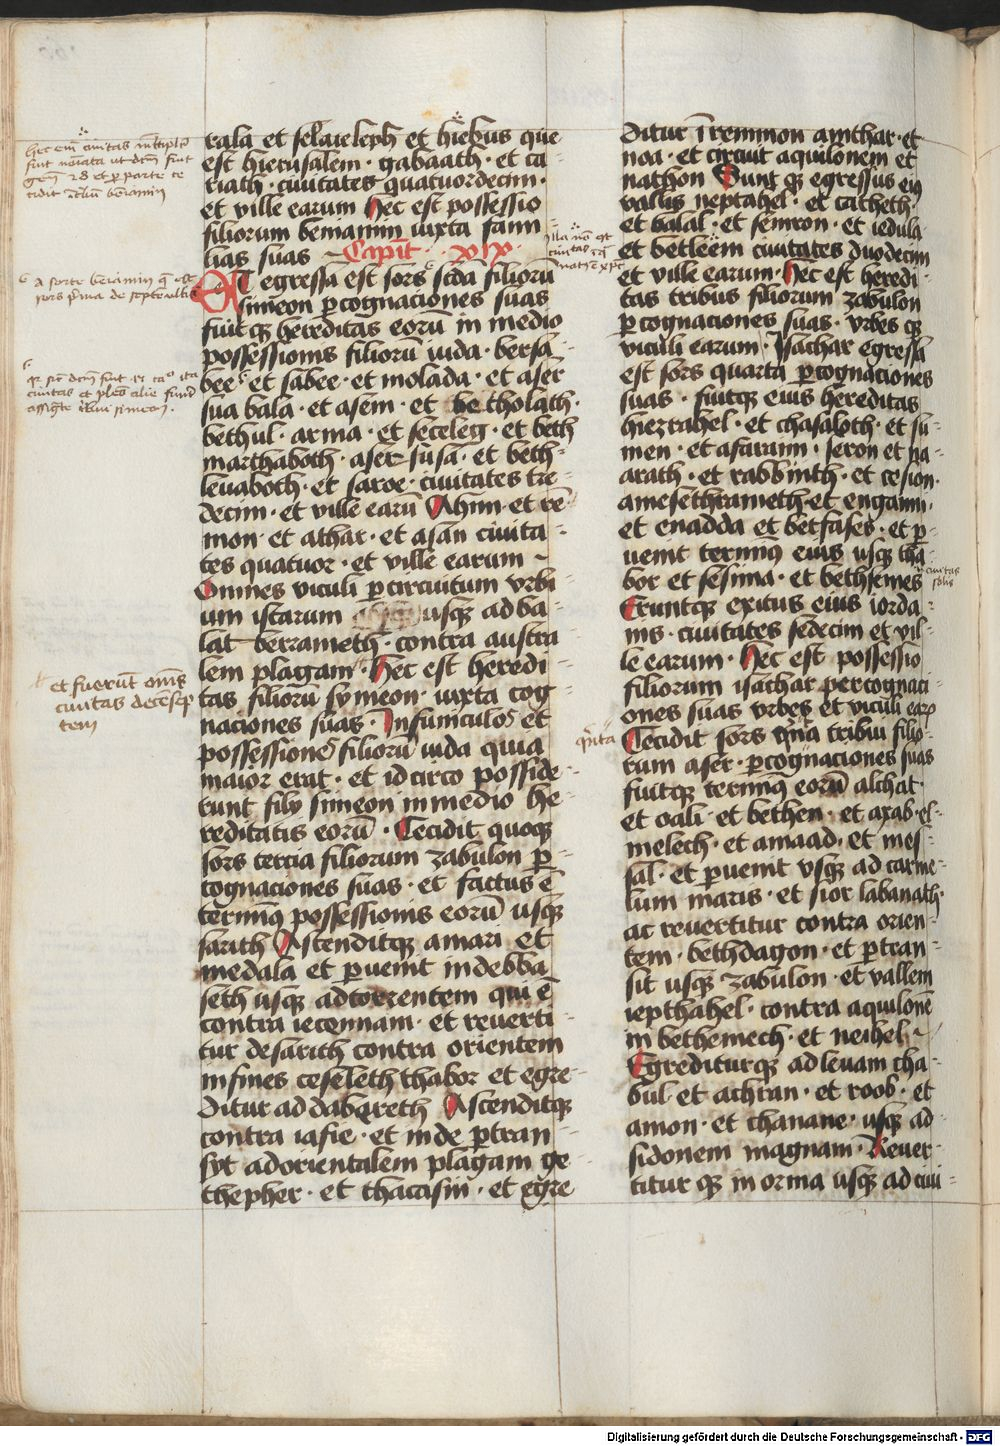 rala et selaieleph et hiebus que
est hierusalem · gabaath · et ca
riath · ciuitates quatuordecim ·
et ville earum Hec est possessio
filiorum beniamin iuxta fami
lias suas ~ Capit · XIX ·
Et egressa est sors scda filiorū
simeon p cognaciones suas
fuitqꝫ hereditas eorū in medio
possessionis filiorū iuda · bersa
bee et sabee · et molada · et aser
sua bala · et asem · et be tholath ·
bethul · arma · et seceleg · et beth
marthaboth · aser susa · et beth
leuaboth · et saroe · ciuitates tre
decim · et ville earū Ahim · et re
mon · et athar · et asan ciuita
tes quatuor · et ville earum ~
Omnes viculi p circuitum vrbi
um istarum usqꝫ ad ba
lat berrameth · contra austra
lem plagam Hec est heredi
tas filiorū symeon · iuxta cog
naciones suas · In funiculo et
possessione filiorū iuda quia
maior erat · et idcirco posside
runt filij simeon in medio he
reditatis eorū · Cecidit quoqꝫ
sors tercia filiorum zabulon p
cognaciones suas · et factus ē
terminꝰ possessionis eorū usqꝫ
sarith Ascenditqꝫ amari et
medala et puenit in debba
seth usqꝫ ad torrentem qui ē
contra ieconnam · et reuerti
tur de sarith contra orientem
in fines ceseleth thabor et egre
ditur ad dabereth Ascenditqꝫ
contra iafie · et inde ptran
syt ad orientalem plagam ge
thepher · et thacasin · et egre
ditur ī remmon amthar · et
noa · et circuit aquilonem et
nathon Sunt qꝫ egressus eiꝰ
vallis ieptahel · et catheth ·
et balal · et semron · et iedula
et betleem ciuitates duodecim
et ville earum · Hec est heredi
tas tribus filiorum zabulon
p cognaciones suas · vrbes qꝫ
viculi earum · Isachar egressa
est sors quarta p cognaciones
suas · fuitqꝫ eius hereditas
hiezrahel · et chasaloth · et su
men · et afaraim · seron et na
arath · et rabbinth · et cesion ·
amesethrameth · et engami ·
et enadda et betfases · et p
uenit terminꝰ eius usqꝫ tha
bor et sesima · et bethsemes
Eruntqꝫ exitus eius iorda
nis · ciuitates sedecim et vil
le earum · Hec est possessio
filiorum isachar per cognaci
ones suas vrbes et viculi earꝫ
Cecidit sors qnta tribui filio
rum aser · p cognaciones suas
fuitqꝫ terminꝰ eorū alchat ·
et oali · et bethen · et axab · el
melech · et amaad · et mes
sal · et puenit vsqꝫ ad carme
lum maris · et sior labanath ·
ac reuertitur contra orien
tem · bethdagon · et ptran
sit usqꝫ zabulon · et vallem
iepthahel · contra aquilonē
in bethemech · et neihel ~
Egrediturqꝫ ad leuam cha
bul · et achran · et roob · et
amon · et chanane · usqꝫ ad
sidonem magnam · Reuer
titur qꝫ in orma usqꝫ ad ciui
et fuerūt omīs
ciuitas decē sep
tem
qnta
ciuitas
solis
Digitalisierung gefördert durch die Deutsche Forschungsgemeinschaft · DFG